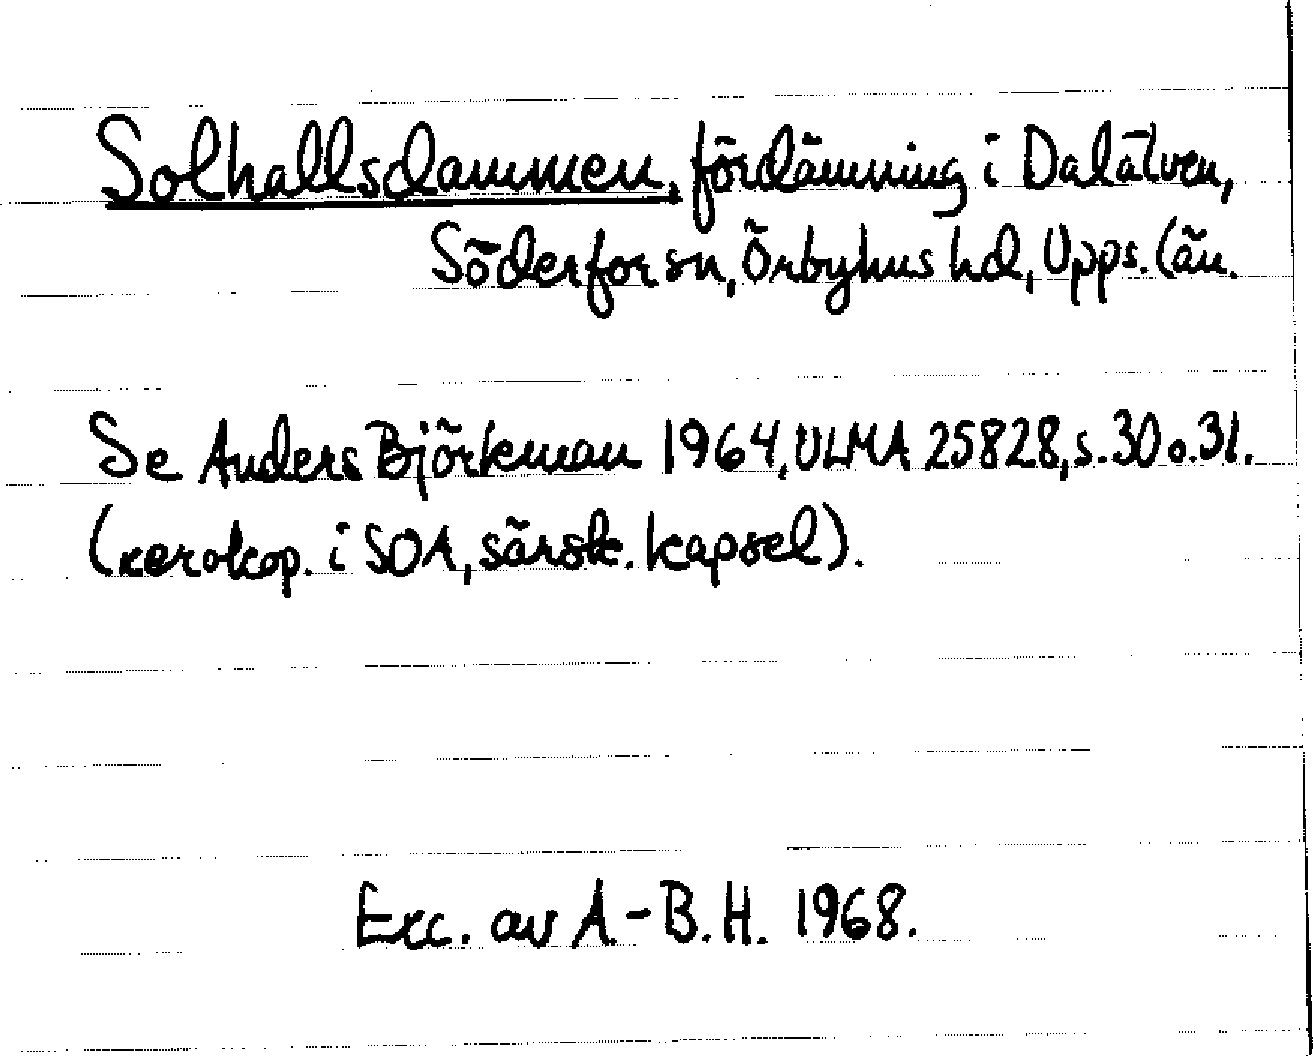 Solhallsdammen, fördämning i Dalälven,
Söderfors sn, Örbyhus hd, Upps. län.
Se Anders Björkman 1964, ULMA 25828, s. 30 o. 31.
(xerokop. i SOA, särsk. kapsel).
Exc. av A.-B.H. 1968.